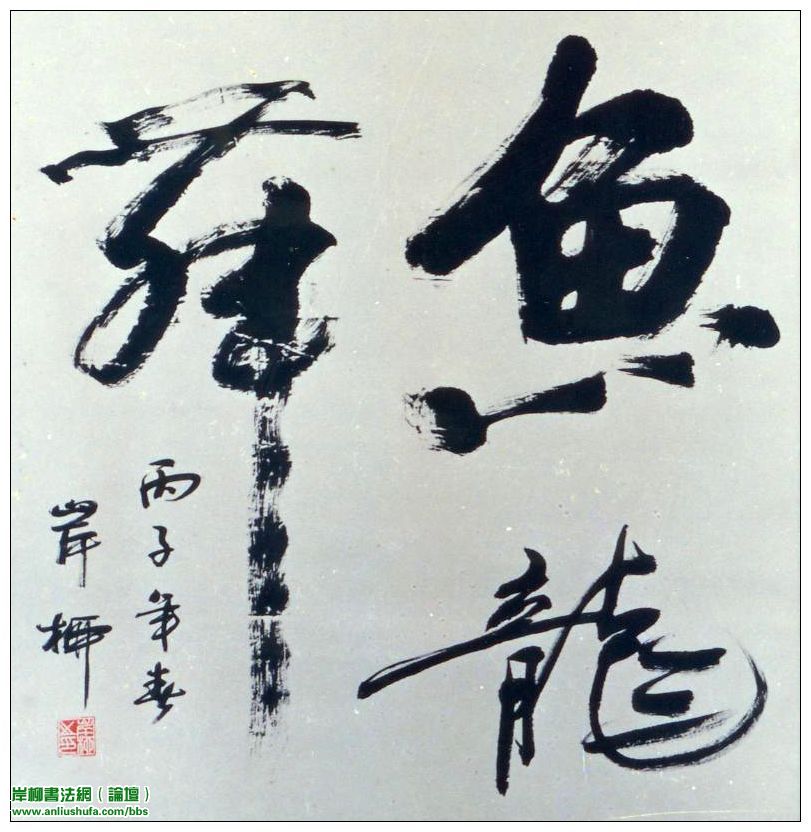 魚龍
舞
丙子年春
岸柳
岸柳書法網（論壇）
www.anliushufa.com/bbs